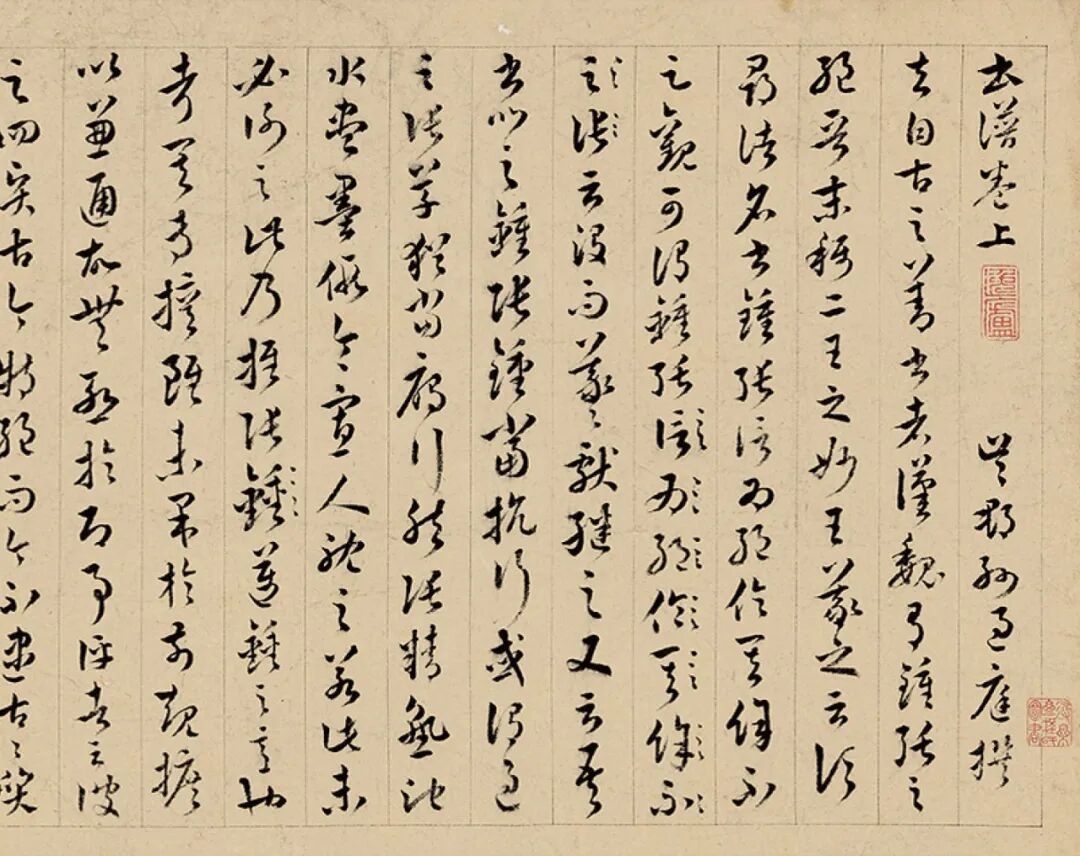 書譜卷上 吳郡孫過庭撰
夫自古之善書者漢魏有鍾張之
絕晉末稱二王之妙王羲之云頃
尋諸名書鍾張信為絕倫其餘不
足觀可謂鍾張信為絕倫其餘不
足張云沒而羲々獻繼之又云吾
書比之鍾張鍾當抗行或謂過
之張草猶當鴈行然張精熟池
水盡墨假令寡人耽之若此未
必謝之此乃推張鍾邁鍾之意也
考其專擅雖未果於前規摭
以兼通故無慙於即事評者云彼
之四賢古今特絕而今不逮古々質